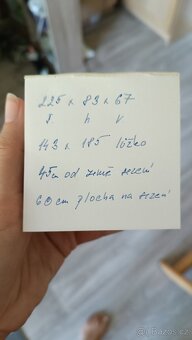 225 x 83 x 67
š h v
143 x 185 lůžko
45cm od země sezení
60 cm plocha na sezení
bazos.cz